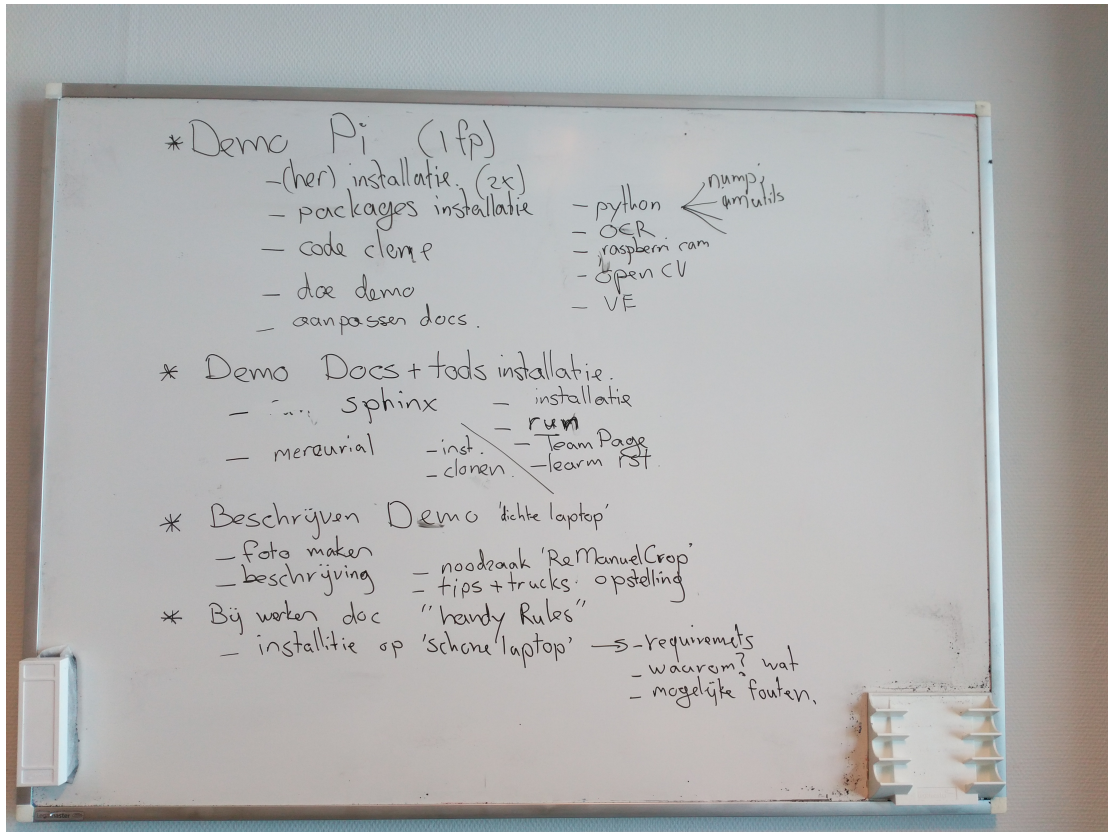 * Demo Pi (1fp)
-(her) installatie. (2x)
- packages installatie
- code clene
- doe demo
- aanpassen docs.
- python
numpi
amutils
- OCR
- raspberri cam
- Open CV
- VE
* Demo Docs + tools installatie.
- sphinx - installatie
- run
- Team Page
- learm rst.
- mercurial - inst.
- clonen.
* Beschrijven Demo 'dichte laptop'
- foto maken
- beschrijving - noodzaak 'ReManuelCrop'
- tips + trucks. opstelling
* Bij werken doc "handy Rules"
- installitie op 'schone laptop' → - requiremets
- waarom? wat
- mogelijke fouten.